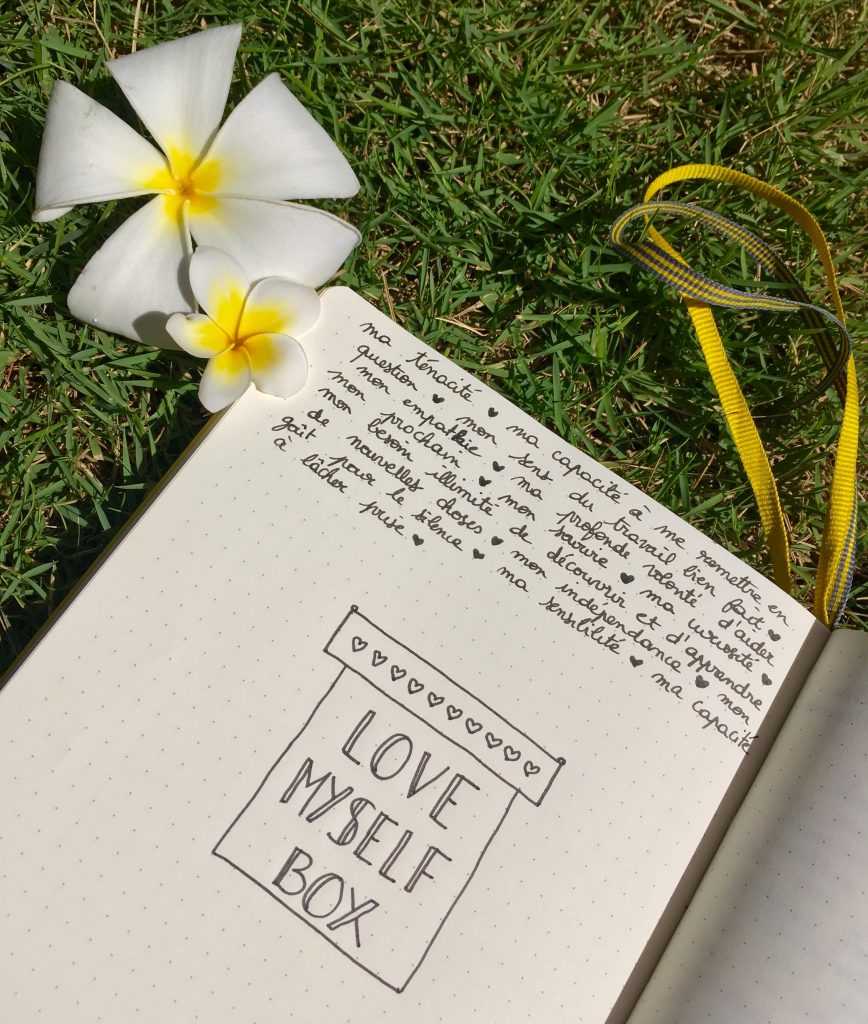 ma tenacité ♥ ma capacité à me remettre en
question ♥ mon sens du travail bien fait ♥
mon empathie ♥ ma profonde volonté d'aider
mon prochain ♥ mon sourire ♥ ma curiosité ♥
mon besoin illimité de découvrir et d'apprendre
de nouvelles choses ♥ mon indépendance ♥ mon
goût pour le silence ♥ ma sensibilité ♥ ma capacité
à lâcher prise ♥
LOVE
MYSELF
BOX